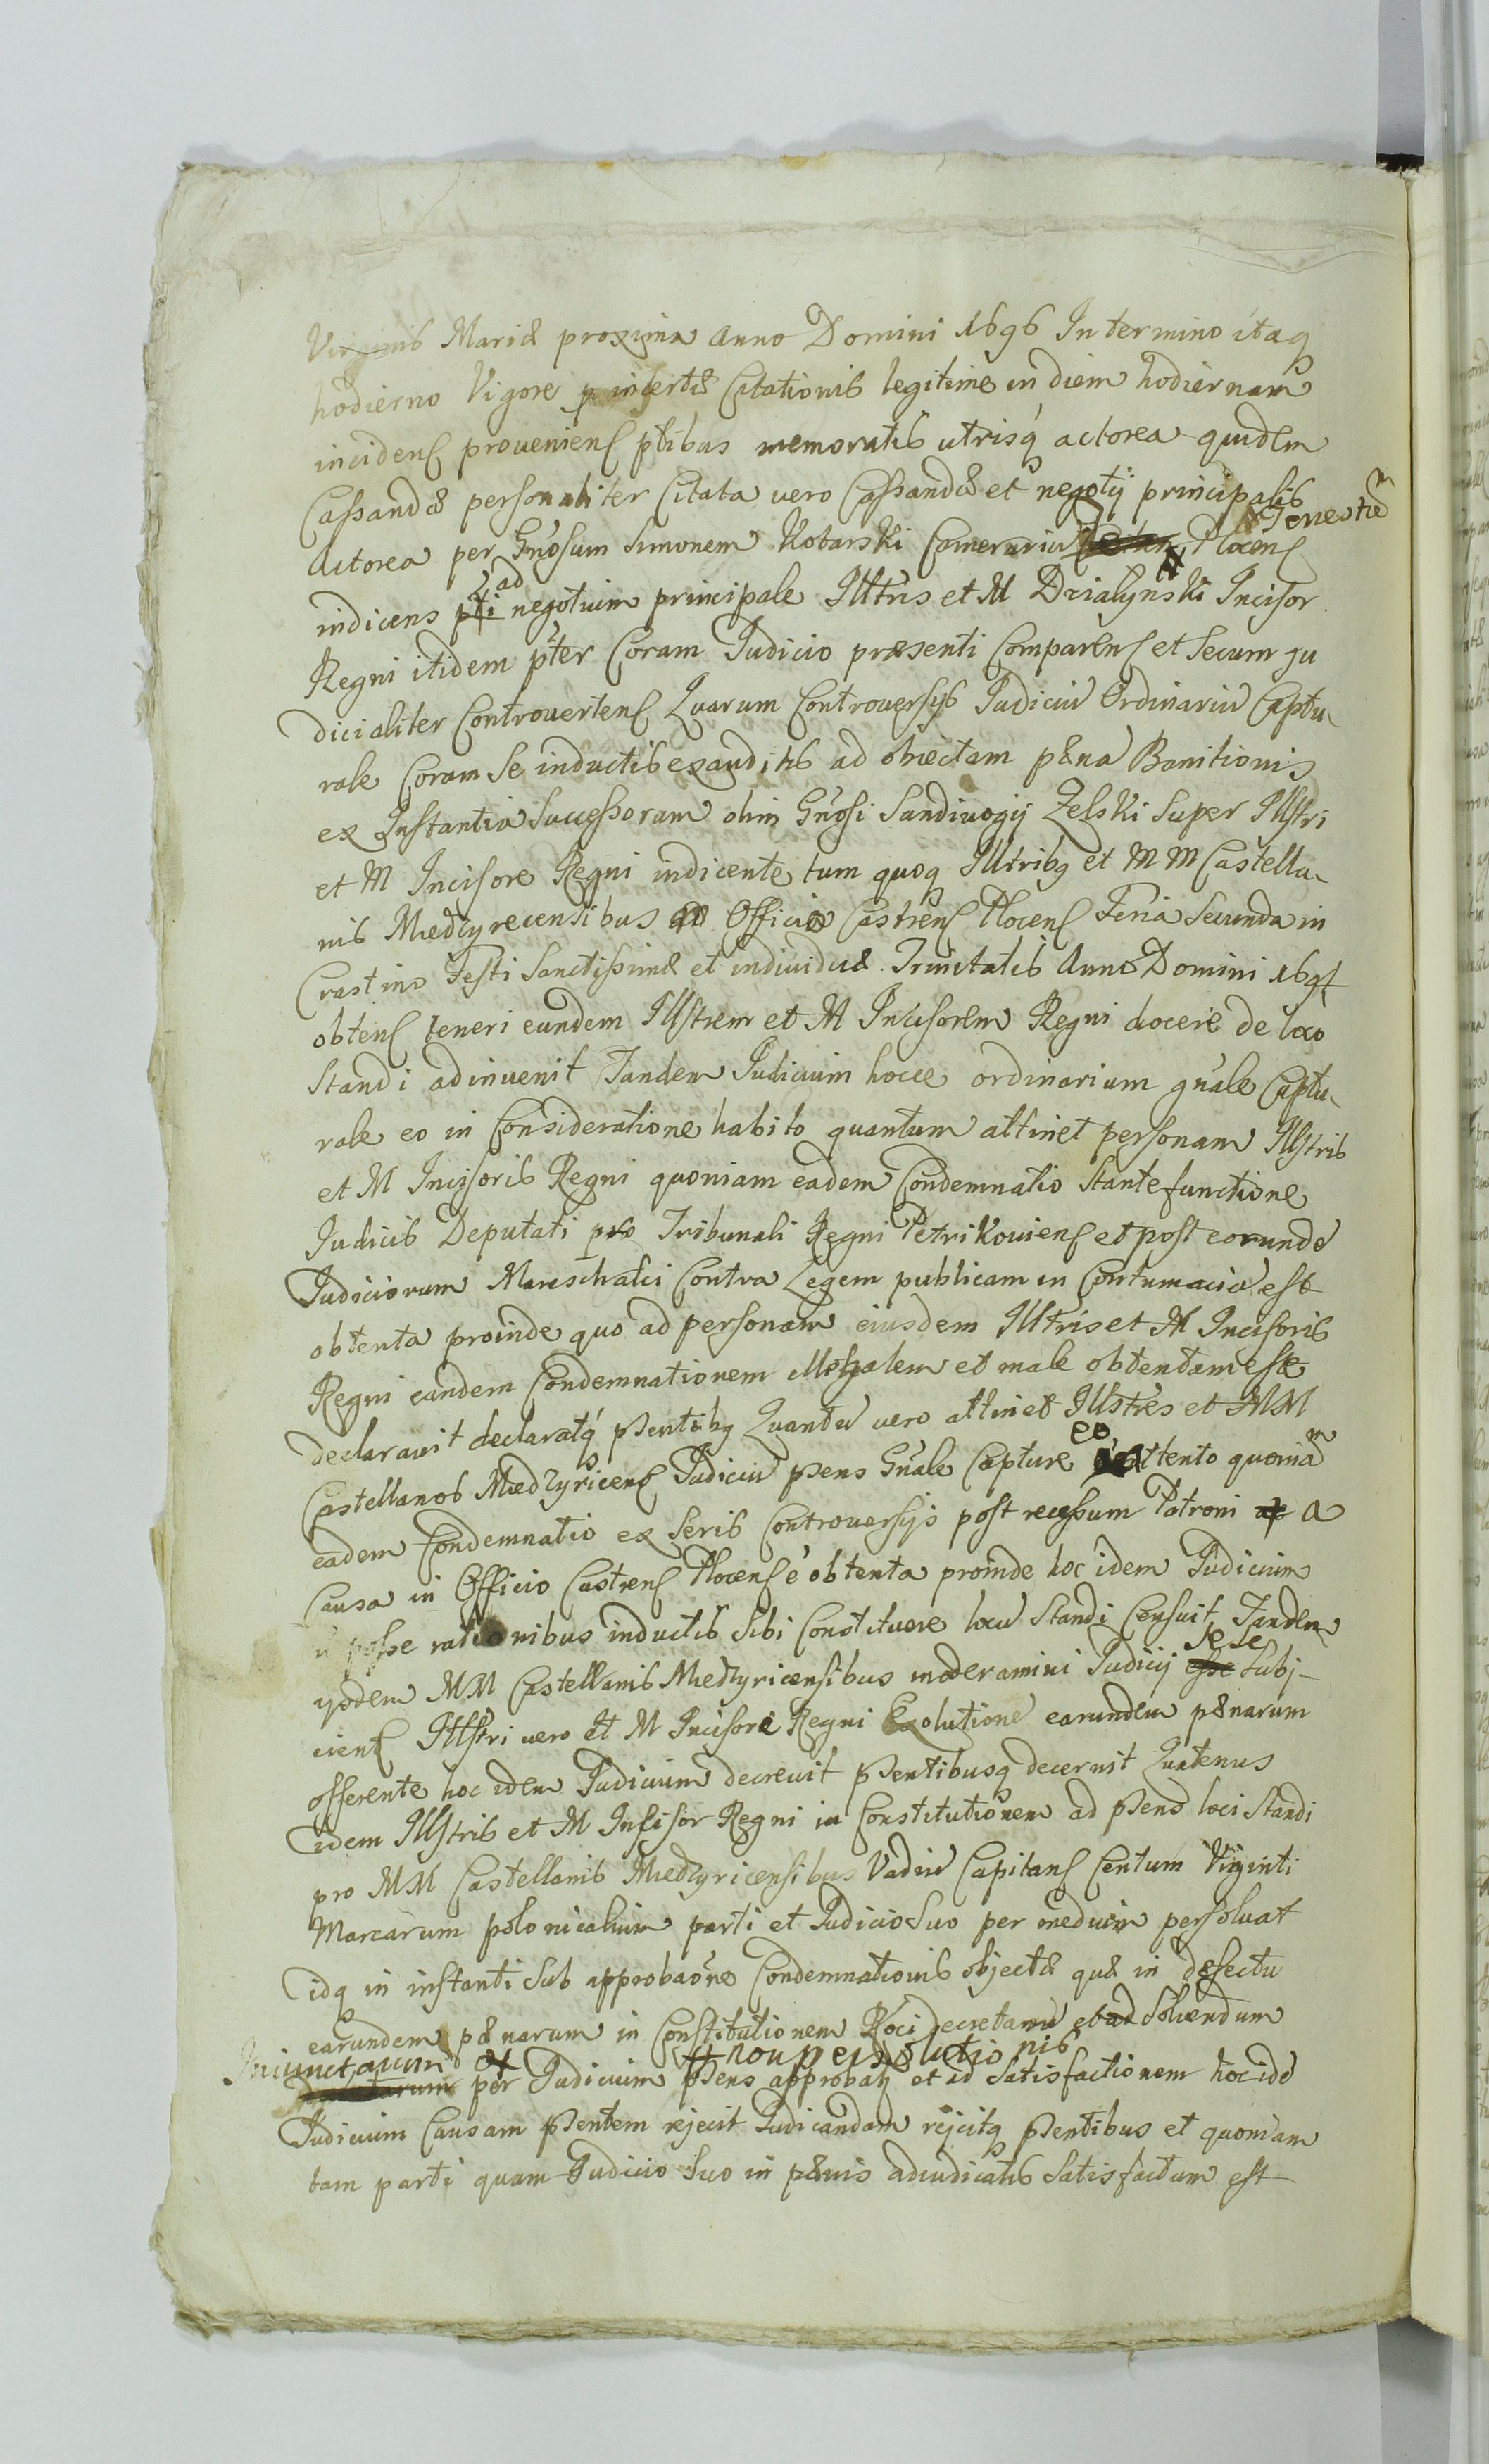 Virginis Mariæ proxima Anno Domini 1696 In termino itaq
hodierno Vigore p insertæ Citationis legitime in diem hodiernam
inciden provenien ptibus memoratis utrisq actorea quidem
Cassandæ personaliter Citata vero Cassandæ et negotij principalis
Actorea per Gnosum Simonem Kobarski Camerariu Terrestrem Plocen
indicens ad negotium principale Illtris et M Dzialynski Incisor
Regni itidem pter Coram Judicio præsenti Comparen et Secum ju
dicialiter Controverten Quarum Controversijs Judiciu Ordinariu Captu
rale Coram Se inductis exauditis ad obiectam pæna Banitionis
ex Instantia Successorum olim Gnosi Sandivogij Zelski Super Illstri
et M Incisore Regni indicente tum quoq Illtribq et M M Castella
nis Miedzyrecensibus Officio Castren Plocen Feria Secunda in
Crastino Festi Sanctissimæ et individuæ Trinitatis Anno Domini
obten teneri eundem Illstrem et M Incisorem Regni docere de loco
Standi adinvenit Tandem Judicium hocce ordinarium gnale Captu
rale eo in Consideratione habito quantum attinet personam Illstris
et M Incisoris Regni quoniam eadem Condemnatio Stante functione
Judicis Deputati pro Tribunali Regni Petrikovien et post eorunde
Judiciorum Mareschalci Contra Legem publicam in Contumacia est
obtenta proinde quo ad personam eiusdem Illtris et M Incisoris
Regni eandem Condemnationem illegalem et male obtentam esse
declaravit declaratq psentibq Quantu vero attinet Illstres et MM
Castellanos Miedzyricen Judiciu psens Gnale Capture eo attento quoniam
eadem Condemnatio ex Seris Controversijs post recessum Patroni a
Causa in Officio Castren Plocen e obtenta proinde hoc idem Judicium
posse rationibus inductis Sibi Constituere locu Standi Censuit Tandem
ijsdem MM Castellanis Miedzyricensibus moderamini Judicij sese Subj
cien Illstri vero et M Incisore Regni Exolutione earundem pænarum
offerente hoc idem Judicium decrevit psentibusq decernit Quatenus
idem Illstris et M Incisor Regni in Constitutionem ad psens loci Standi
pro MM Castellanis Miedzyricensibus Vadiu Capitan Centum Viginti
Marcarum polonicalium parti et Judicio Suo per medium persolvat
idq in instanti Sub approbaone Condemnationis objectæ quæ in defectu
earundem pænarum in Constitutionem loci decretarum et ad Solvendum
Iniunctarum et non persolutionis
per Judicium psens approbat et ad Satisfactionem hoc ide
Judicium Causam psentem rejecit Judicandam rejcitq psentibus et quoniam
tam parti quam Judicio Suo in pænis adiudicatis Satisfactum est